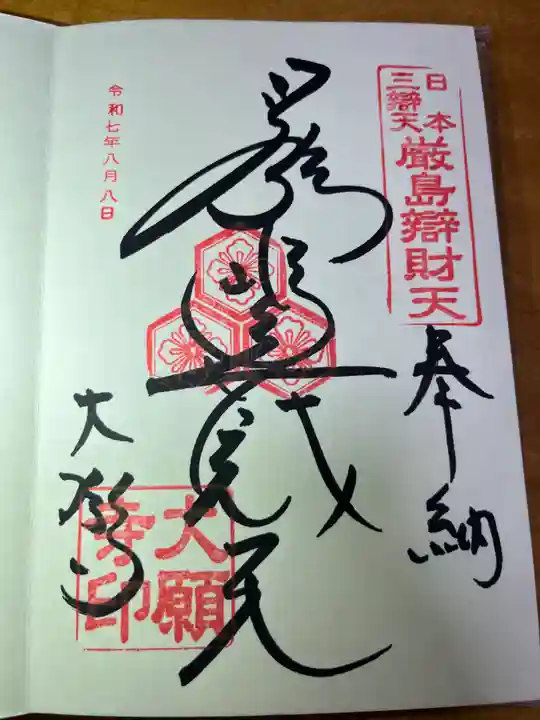 日本
三辯天
厳島辯財天
奉納
厳島弁財天
大願寺
大願
寺印
令和七年八月八日